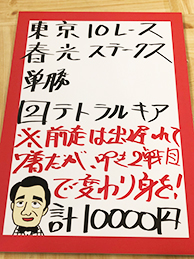 東京10レース
春光ステークス
単勝
②テトラルキア
※前走は出遅れて
7着だが、叩き2戦目
で変わり身を!
計10000円